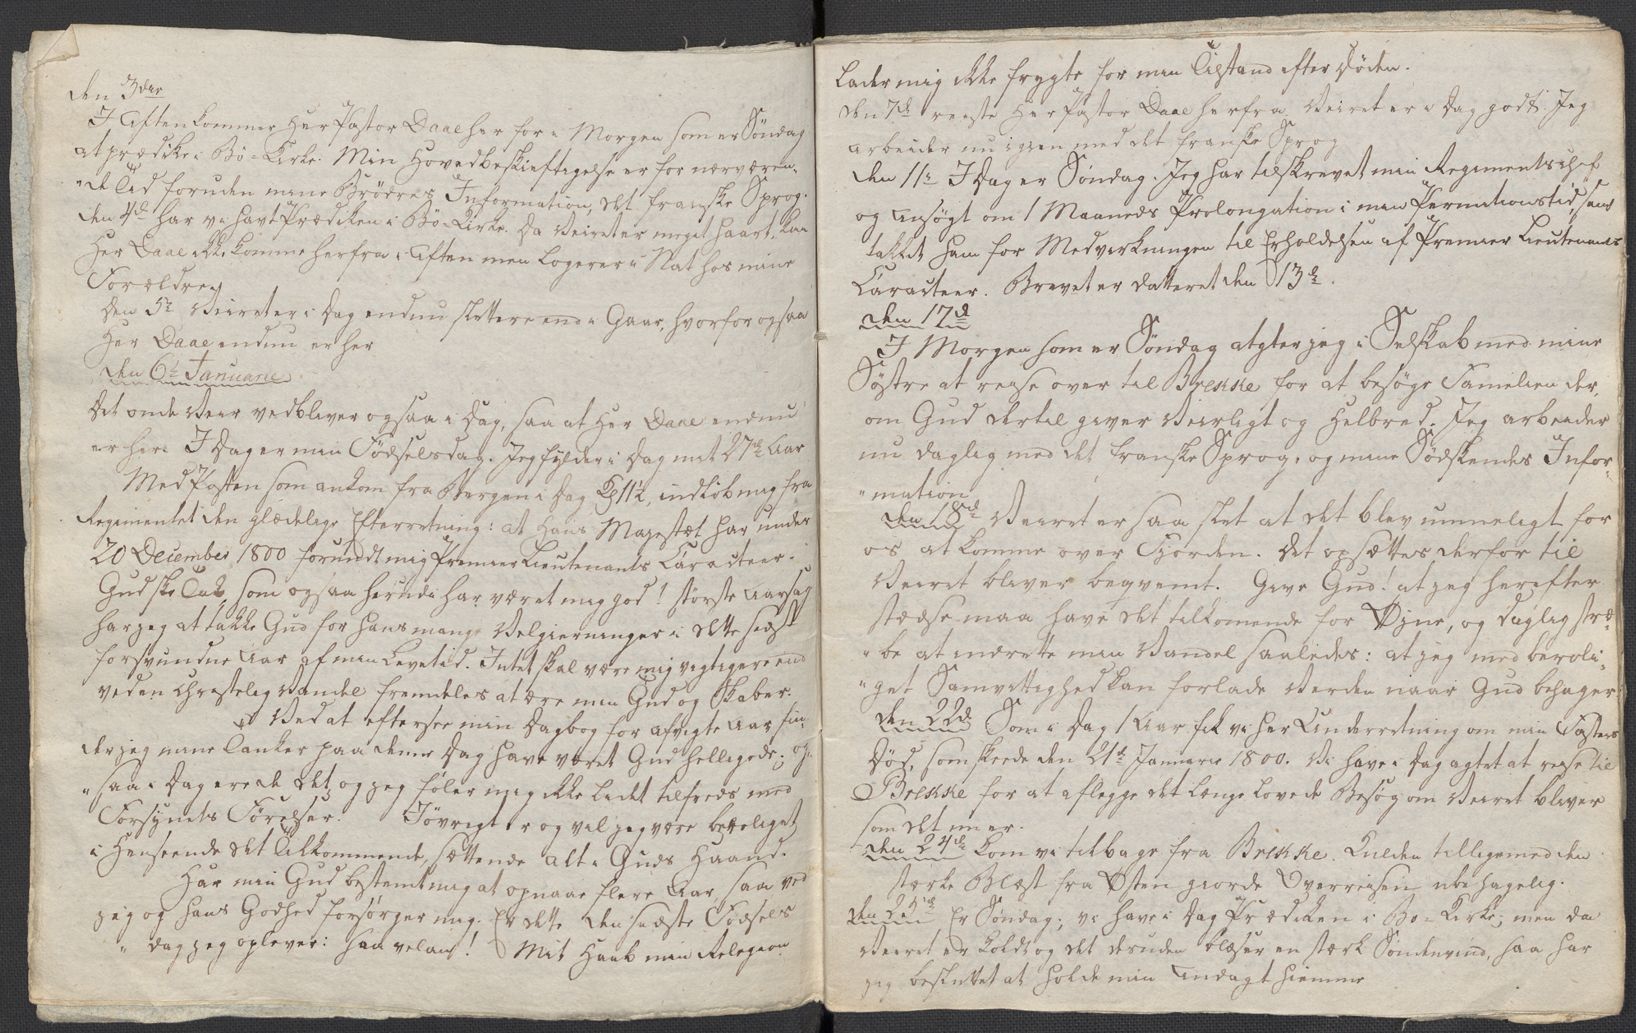 Den 3die
I Aften kommer Her Pastor Daae her for i Morgen som er Søndag
at prædike i Bö-Kirke. Min Hovedbeskieftigelse er for nærværen-
"de Tid foruden mine Brödres Information, det franske Sprog.
Den 4de har vi havt Prædiken i Bö-Kirke. Da Veiret er meget haart, kan
Her Daae ikke komme herfra i Aften men logerer i Nat hos mine
Forældre.
Den 5te Veiret er i Dag endnu slettere end i Gaar, hvorfor ogsaa
Her Daae endnu er her
Den 6te Januarii
Det onde Veir vedbliver ogsaa i Dag, saa at Her Daae endnu
er her. I Dag er min Födselsdag. Jeg fylder i Dag mit 27de Aar
Med Posten som ankom fra Bergen i Dag Kl 11½, indløb mig fra
Regimentet den glædelige Efterretning: at Hans Majestæt har under
20 December 1800 forundt mig Premier Lieutenants Caracteer.
Gud ske Tak, som ogsaa herudi har været mig god! største Aarsag
har jeg at takke Gud for hans mange Velgierninger i dette sidst
forsvundne Aar af min Levetid. Intet skal være mig vigtigere end
ved en Christelig Vandel fremdeles at ære min Gud og Skaber.
Ved at eftersee min Dagbog for afvigte Aar fin-
der jeg mine Tanker paa denne Dag have været Gud helligede; og-
"saa i Dag ere de det, og jeg föler mig ikke lidet tilfreds med
Forsynets Förelser. Iövrigt er og vil jeg være beroliget
i Henseende det Tilkommende, sættende alt i Guds Haand.
Har min Gud bestemt mig at opnaae flere Aar, saa ved
jeg og hans Godhed forsörger mig. Er dette den sidste Födsels
"dag jeg oplever: saa velan! Mit Haab min Relegion
lader mig ikke frygte for min Tilstand efter Döden.
Den 7de reiste Her Pastor Daae herfra. Veiret er i Dag godt. Jeg
arbeider nu igien med det franske Sprog
Den 11te I Dag er Söndag. Jeg har tilskrevet min Regimentschef
og ansögt om 1 Maaneds Prolongation i min Permitionstid, samt
takket ham for Medvirkningen til Erholdelsen af Premier Lieutenants
Caracteer. Brevet er datteret den 13de.
Den 17de
I Morgen som er Söndag agter jeg i Selskab med mine
Söstre at reise over til Brekke for at besöge Familien der,
om Gud dertil giver Veirligt og Helbred. Jeg arbeider
nu daglig med det franske Sprog, og mine Södskendes Infor-
"mation
Den 18de Veiret er saa slet at det blev umueligt for
os at komme over Fjorden. Det opsættes derfor til
Veiret bliver beqvemt. Give Gud! at jeg herefter
stedse maa have det tilkomende for Øjne, og daglig stræ-
"be at indrette min Vandel saaledes: at jeg med beroli-
"get Samvittighed kan forlade Verden naar Gud behager
Den 22de Som i Dag 1 Aar fik vi her Underretning om min Fasters
Död, som skeede den 21de Januarii 1800. Vi have i Dag agtet at reise til
Brekke for at aflegge det længe lovede Besög om Veiret bliver
som det nu er.
Den 24de kom vi tilbage fra Brekke. Kulden tilligemed den
stærke Blæst fra Østen giorde Overreisen ubehagelig.
Den 25de Er Söndag; vi have i Dag Prædiken i Bö-Kirke; men da
Veiret er koldt og det desuden blæser en stærk Söndenvind, saa har
jeg besluttet at holde min Andagt hiemme